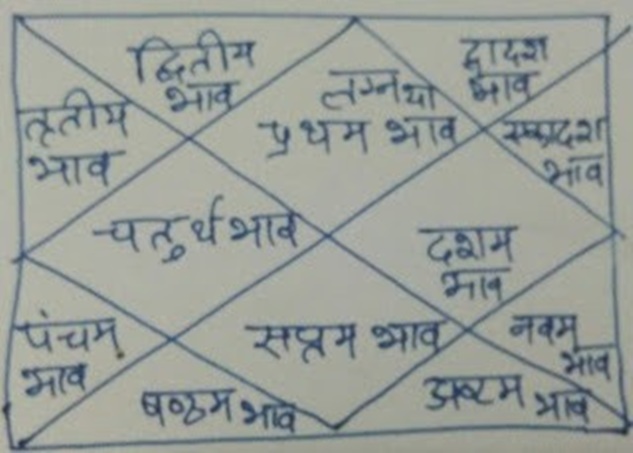 द्वितीय
भाव
लग्न या
प्रथम भाव
द्वादश
भाव
तृतीय
भाव
एकादश
भाव
चतुर्थ भाव
दशम
भाव
पंचम
भाव
सप्तम भाव
नवम
भाव
षष्ठम भाव
अष्टम भाव